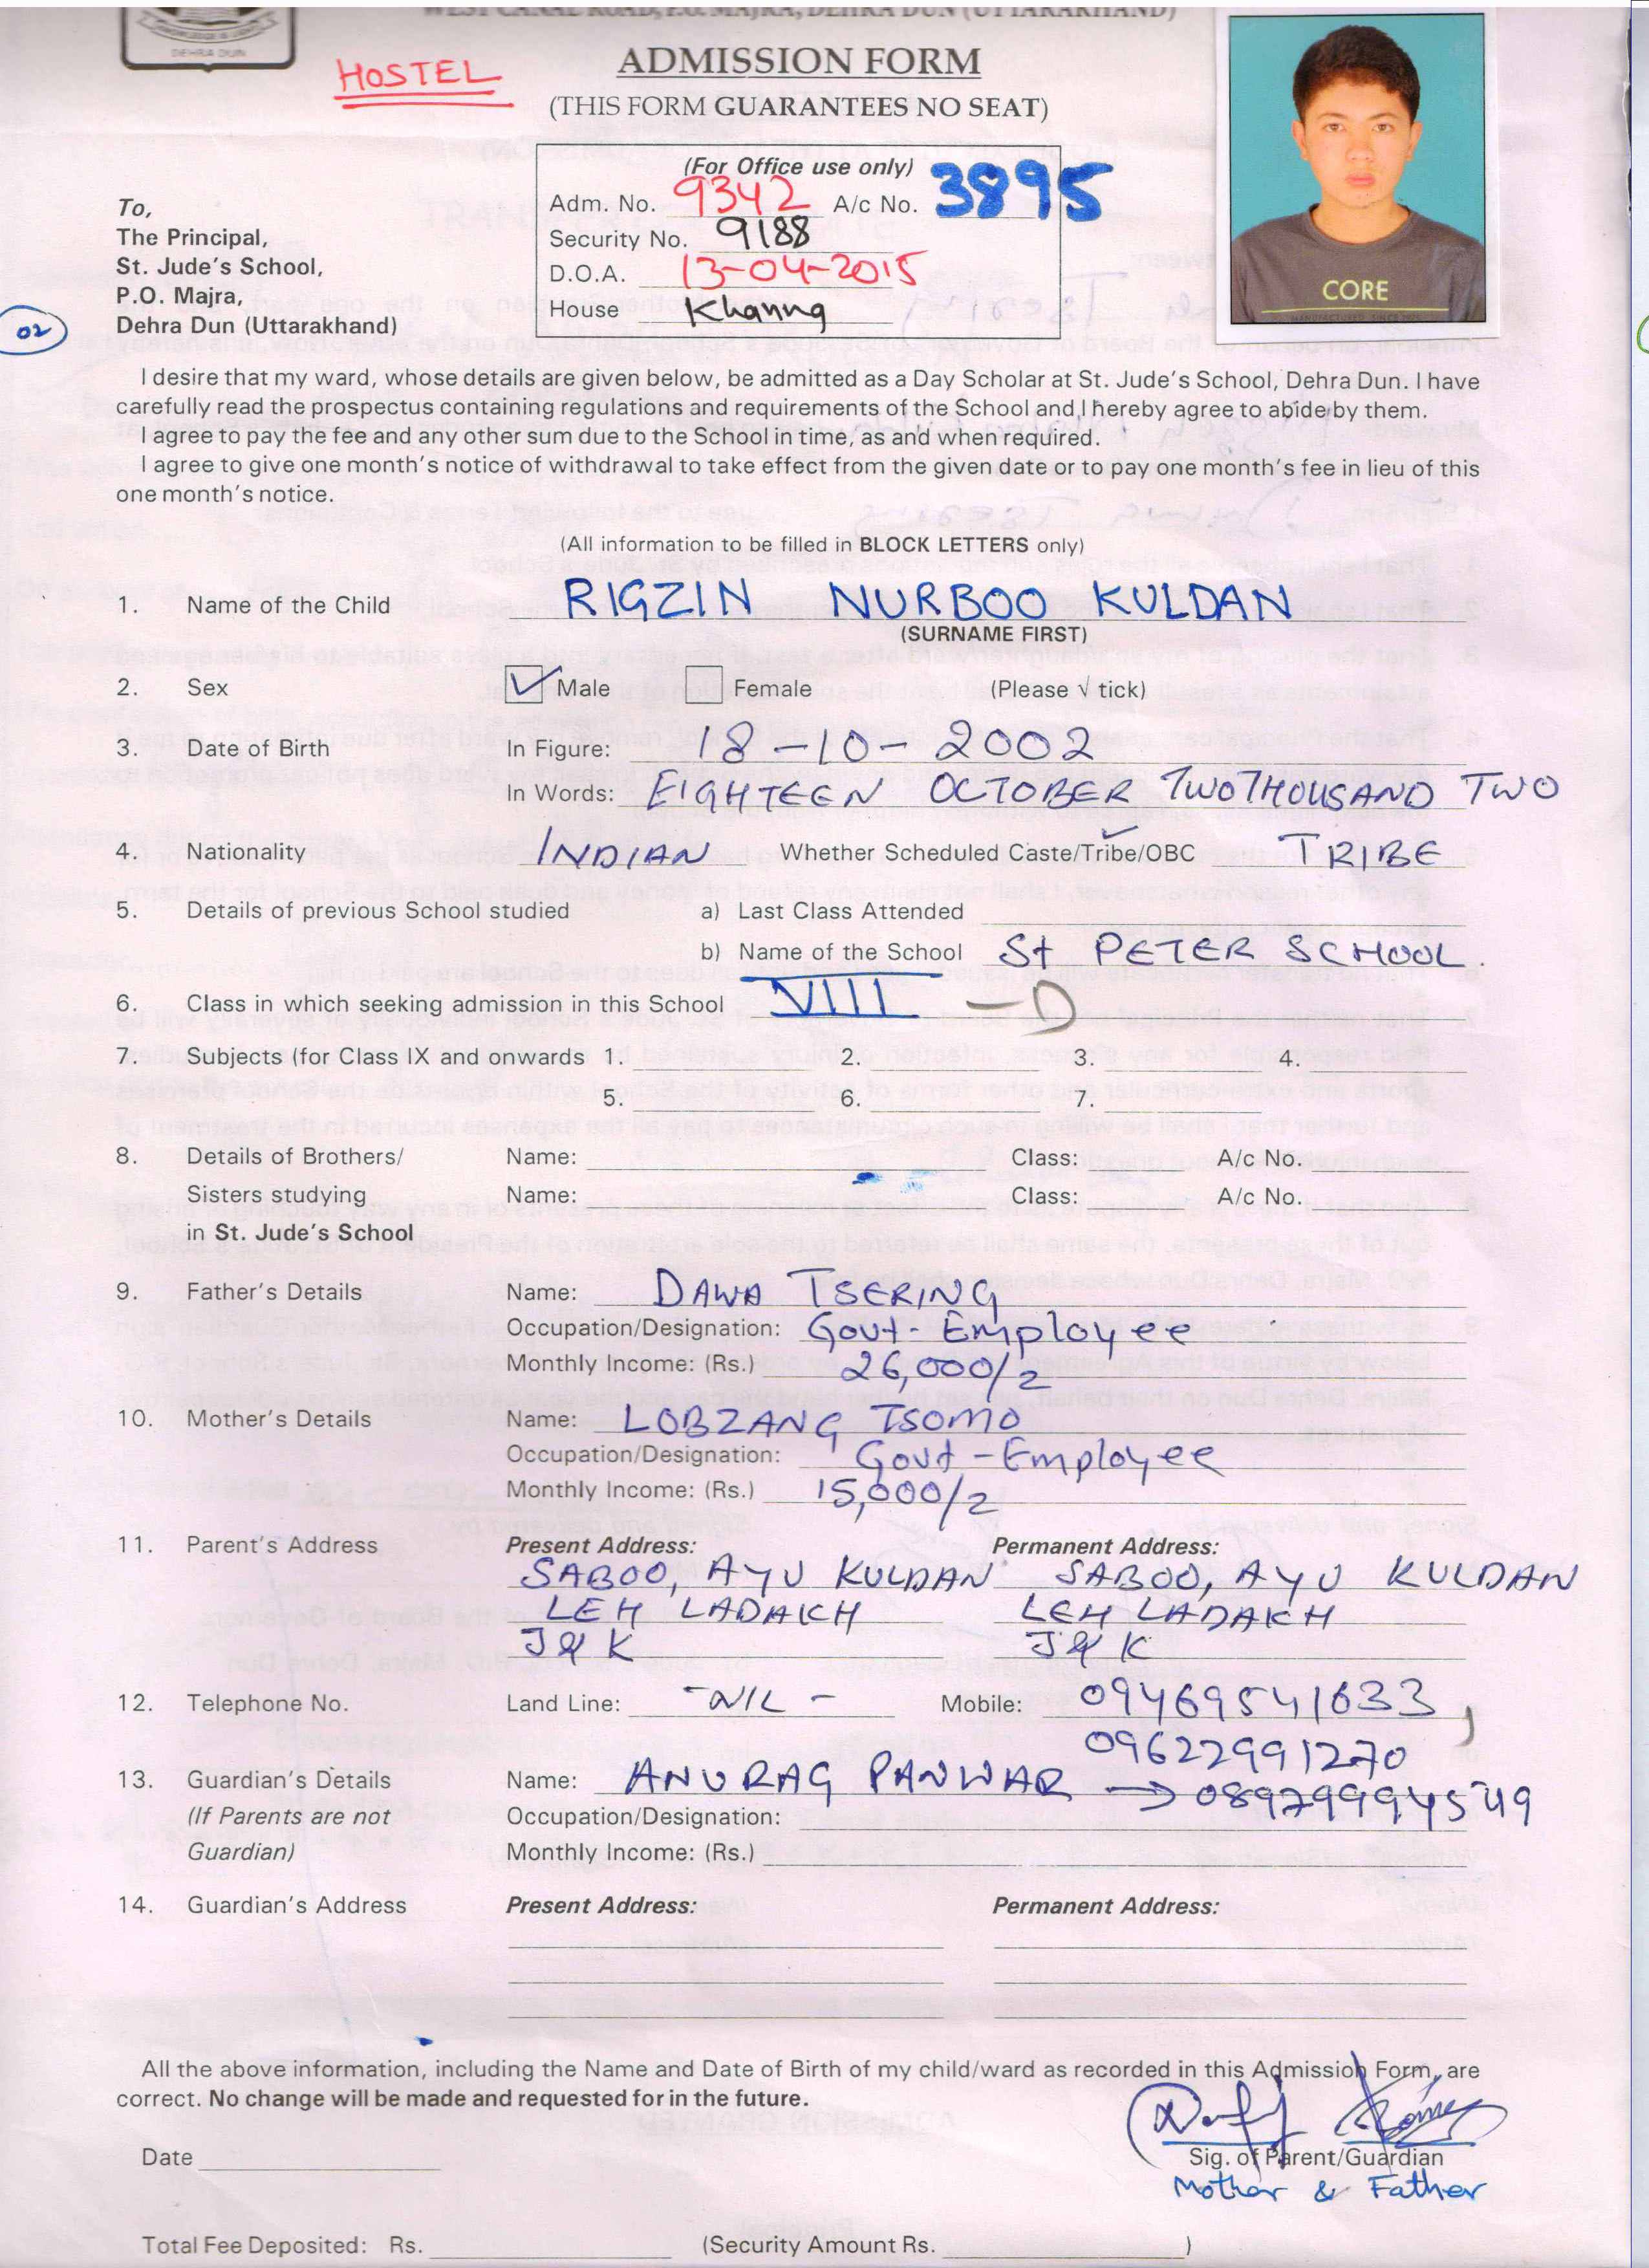 WEST CANAL ROAD, P.O. MAJRA, DEHRA DUN (UTTARAKHAND)
DEHRA DUN
HOSTEL
ADMISSION FORM
(THIS FORM GUARANTEES NO SEAT)
CORE
(For Office use only)
Adm. No. 9342 A/c No. 3895
Security No. 9188
D.O.A. 13-04-2015
House Khanng
To,
The Principal,
St. Jude's School,
P.O. Majra,
Dehra Dun (Uttarakhand)
02
I desire that my ward, whose details are given below, be admitted as a Day Scholar at St. Jude's School, Dehra Dun. I have
carefully read the prospectus containing regulations and requirements of the School and I hereby agree to abide by them.
I agree to pay the fee and any other sum due to the School in time, as and when required.
I agree to give one month's notice of withdrawal to take effect from the given date or to pay one month's fee in lieu of this
one month's notice.
(All information to be filled in BLOCK LETTERS only)
1. Name of the Child RIGZIN NURBOO KULDAN
(SURNAME FIRST)
2. Sex ✓ Male Female (Please √ tick)
3. Date of Birth In Figure: 18-10-2002
In Words: EIGHTEEN OCTOBER TWOTHOUSAND TWO
4. Nationality INDIAN Whether Scheduled Caste/Tribe/OBC TRIBE
5. Details of previous School studied a) Last Class Attended
b) Name of the School St PETER SCHOOL.
6. Class in which seeking admission in this School VIII - D
7. Subjects (for Class IX and onwards 1. 2. 3. 4.
5. 6. 7.
8. Details of Brothers/ Name: Class: A/c No.
Sisters studying Name: Class: A/c No.
in St. Jude's School
9. Father's Details Name: DAWA TSERING
Occupation/Designation: Govt- Employee
Monthly Income: (Rs.) 26,000/2
10. Mother's Details Name: LOBZANG TSOMO
Occupation/Designation: Govt - Employee
Monthly Income: (Rs.) 15,000/2
11. Parent's Address Present Address: Permanent Address:
SABOO, AYU KULDAN SABOO, AYU KULDAN
LEH LADAKH LEH LADAKH
J & K J & K
12. Telephone No. Land Line: -NIL- Mobile: 09469541633,
09622991270
13. Guardian's Details Name: ANURAG PANWAR → 08979994549
(If Parents are not Occupation/Designation:
Guardian) Monthly Income: (Rs.)
14. Guardian's Address Present Address: Permanent Address:
All the above information, including the Name and Date of Birth of my child/ward as recorded in this Admission Form, are
correct. No change will be made and requested for in the future.
Date Sig. of Parent/Guardian
Mother & Father
Total Fee Deposited: Rs. (Security Amount Rs. )